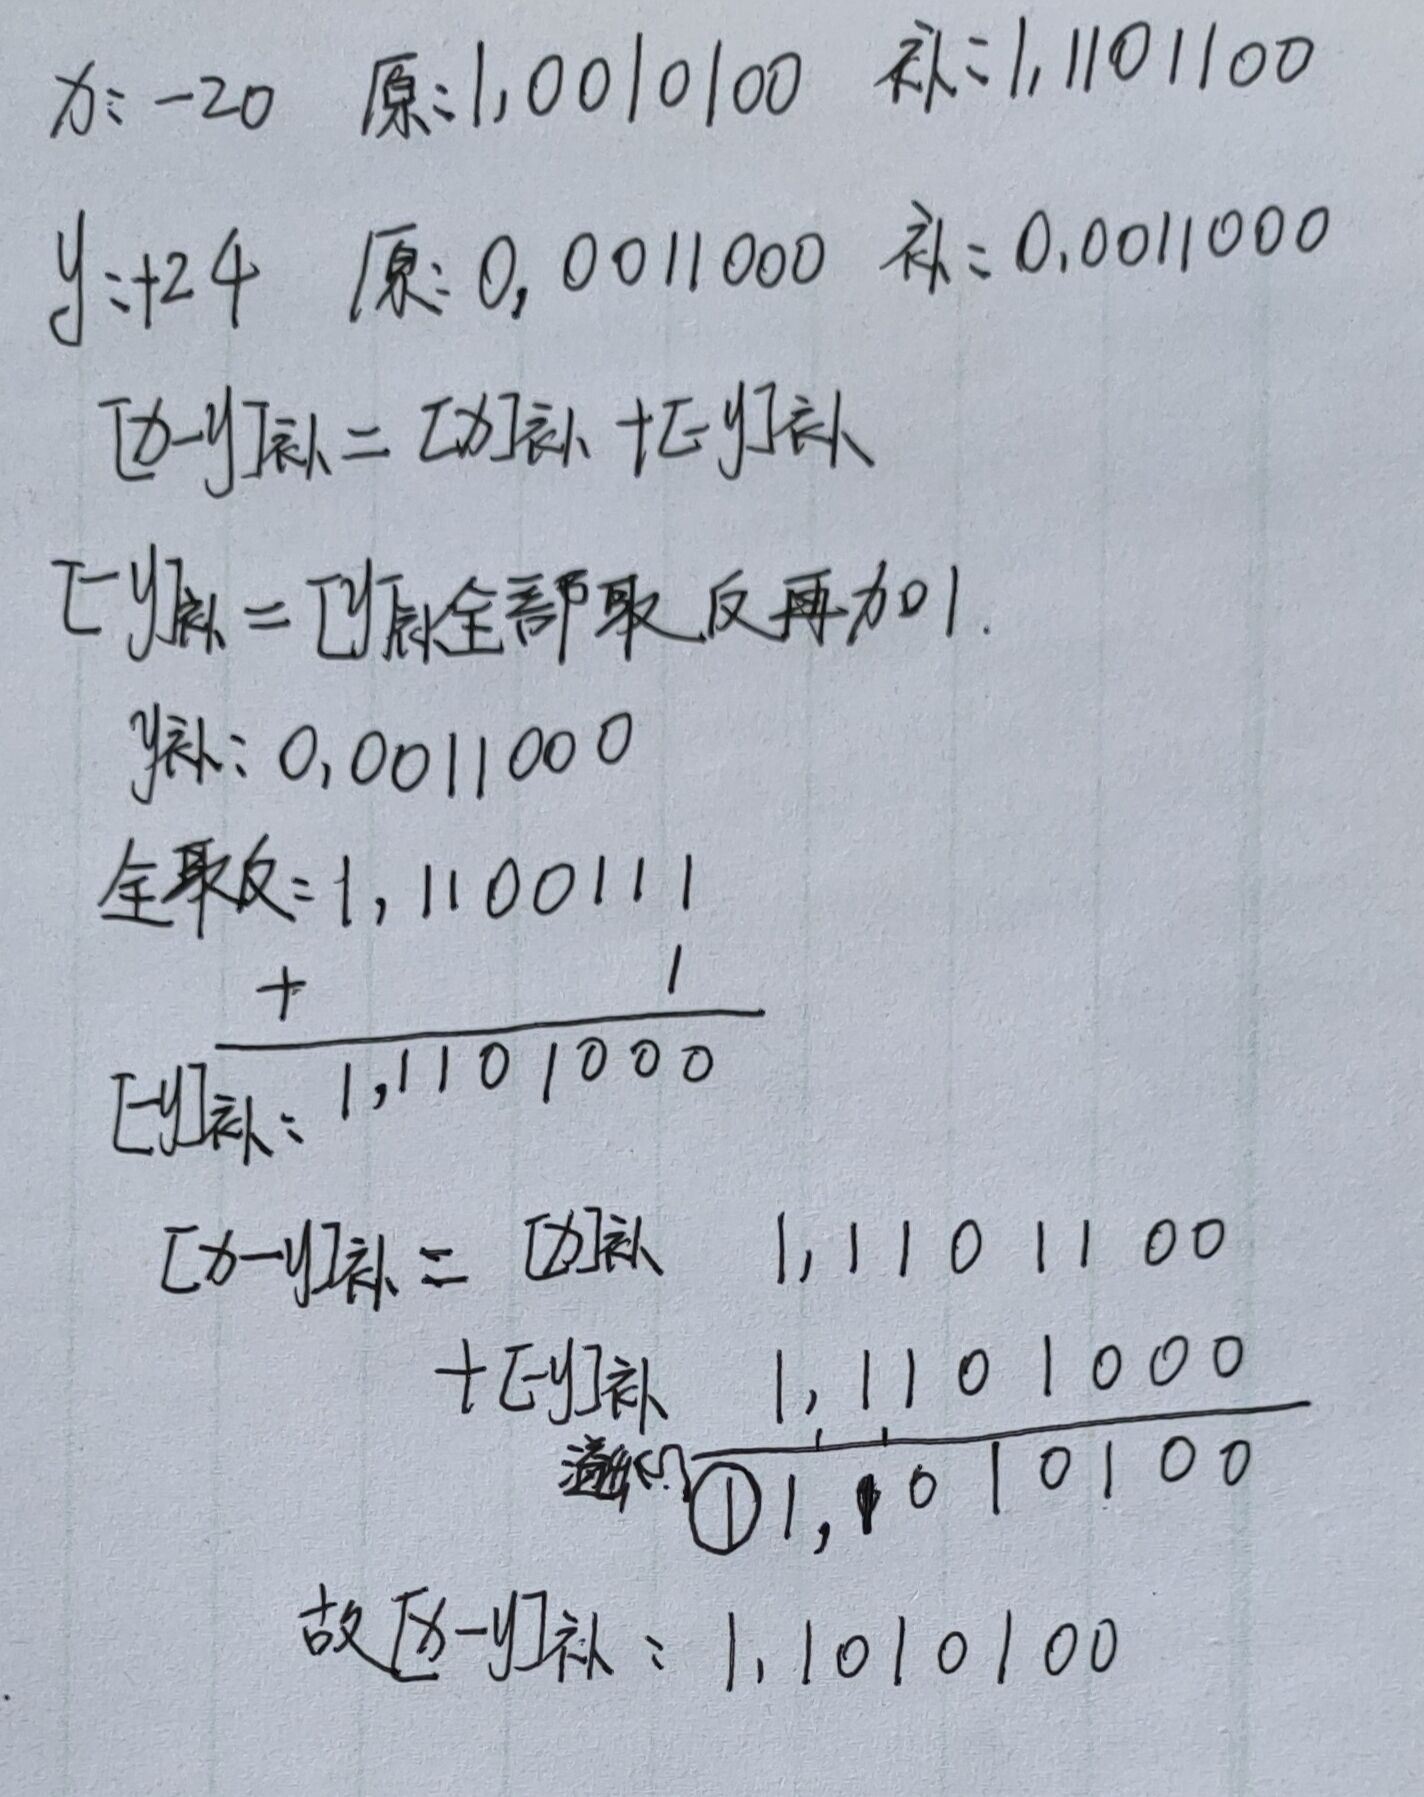 x: -20 原:1,0010100 补:1,1101100
y:+24 原:0,0011000 补:0,0011000
[x-y]补=[x]补+[-y]补
[-y]补=[y]补全部取反再加1.
y补:0,0011000
全取反:1,1100111
+ 1
[-y]补:1,1101000
[x-y]补= [x]补 1,1101100
+[-y]补 1,1101000
溢出 ①1,1010100
故[x-y]补:1,1010100